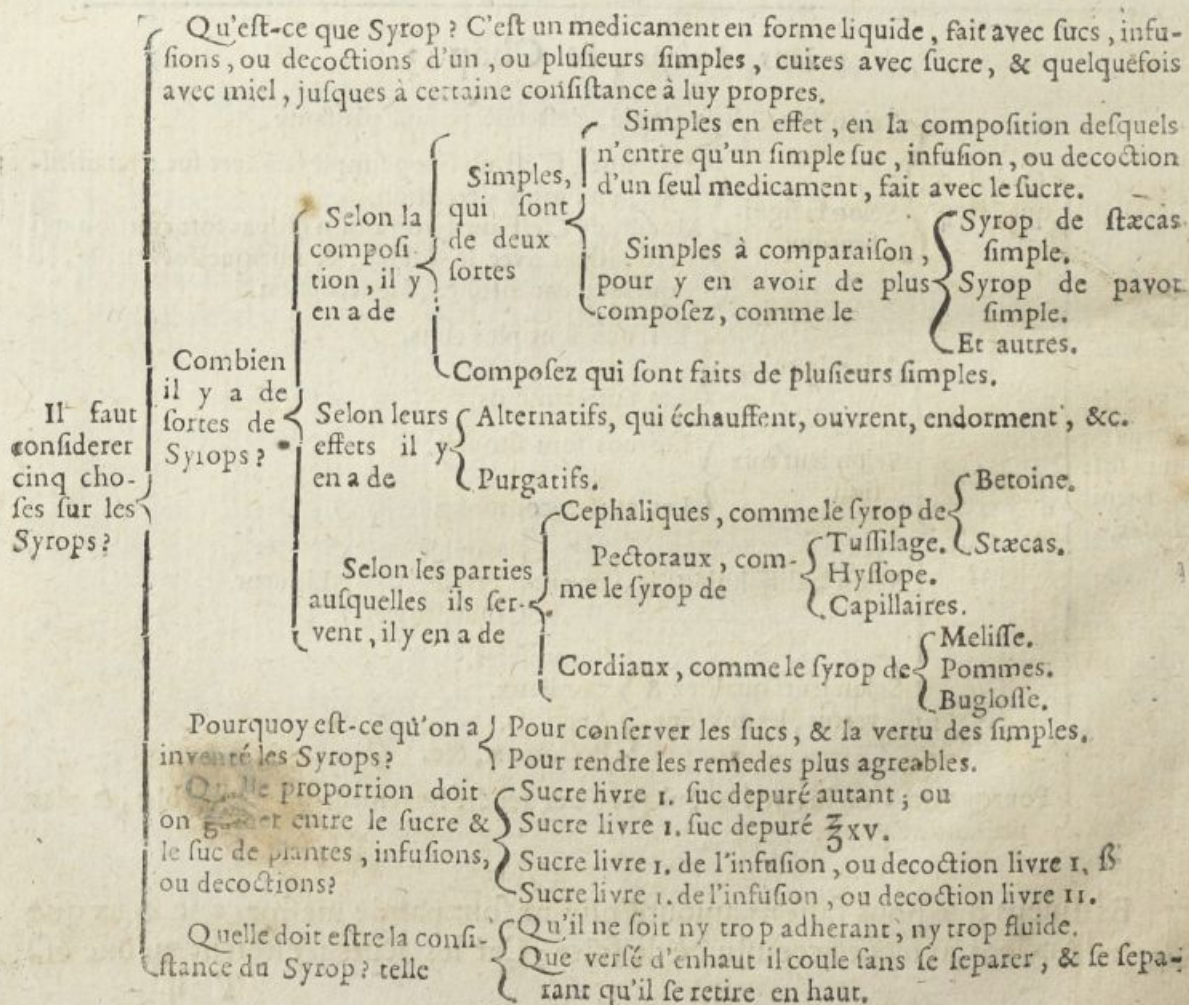 Qu'eſt-ce que Syrop ? C'eſt un medicament en forme liquide, fait avec ſucs, infu-
ſions, ou decoctions d'un, ou pluſieurs ſimples, cuites avec ſucre, & quelquefois
avec miel, juſques à certaine conſiſtance à luy propres.
Il faut
conſiderer
cinq cho-
ſes ſur les
Syrops ?
Combien
il y a de
ſortes de
Syrops ?
Selon la
compoſi-
tion, il y
en a de
Simples,
qui ſont
de deux
ſortes
Simples en effet, en la compoſition deſquels
n'entre qu'un ſimple ſuc, infuſion, ou decoction
d'un ſeul medicament, fait avec le ſucre.
Simples à comparaiſon,
pour y en avoir de plus
compoſez, comme le
Syrop de ſtæcas
ſimple.
Syrop de pavot
ſimple.
Et autres.
Compoſez qui ſont faits de pluſieurs ſimples.
Selon leurs
effets il y
en a de
Alternatifs, qui échauffent, ouvrent, endorment, &c.
Purgatifs.
Selon les parties
auſquelles ils ſer-
vent, il y en a de
Cephaliques, comme le ſyrop de
Betoine.
Stæcas.
Pectoraux, com-
me le ſyrop de
Tuſſilage.
Hyſſope.
Capillaires.
Cordiaux, comme le ſyrop de
Meliſſe.
Pommes.
Bugloſſe.
Pourquoy eſt-ce qu'on a
inventé les Syrops ?
Pour conſerver les ſucs, & la vertu des ſimples.
Pour rendre les remedes plus agreables.
Quelle proportion doit
on entre le ſucre &
le ſuc de plantes, infuſions,
ou decoctions ?
Sucre livre 1. ſuc depuré autant ; ou
Sucre livre 1. ſuc depuré ℥xv.
Sucre livre 1. de l'infuſion, ou decoction livre 1. ß
Sucre livre 1. de l'infuſion, ou decoction livre 11.
Quelle doit eſtre la conſi-
ſtance du Syrop ? telle
Qu'il ne ſoit ny trop adherant, ny trop fluide.
Que verſé d'enhaut il coule ſans ſe ſeparer, & ſe ſepa-
rant qu'il ſe retire en haut.